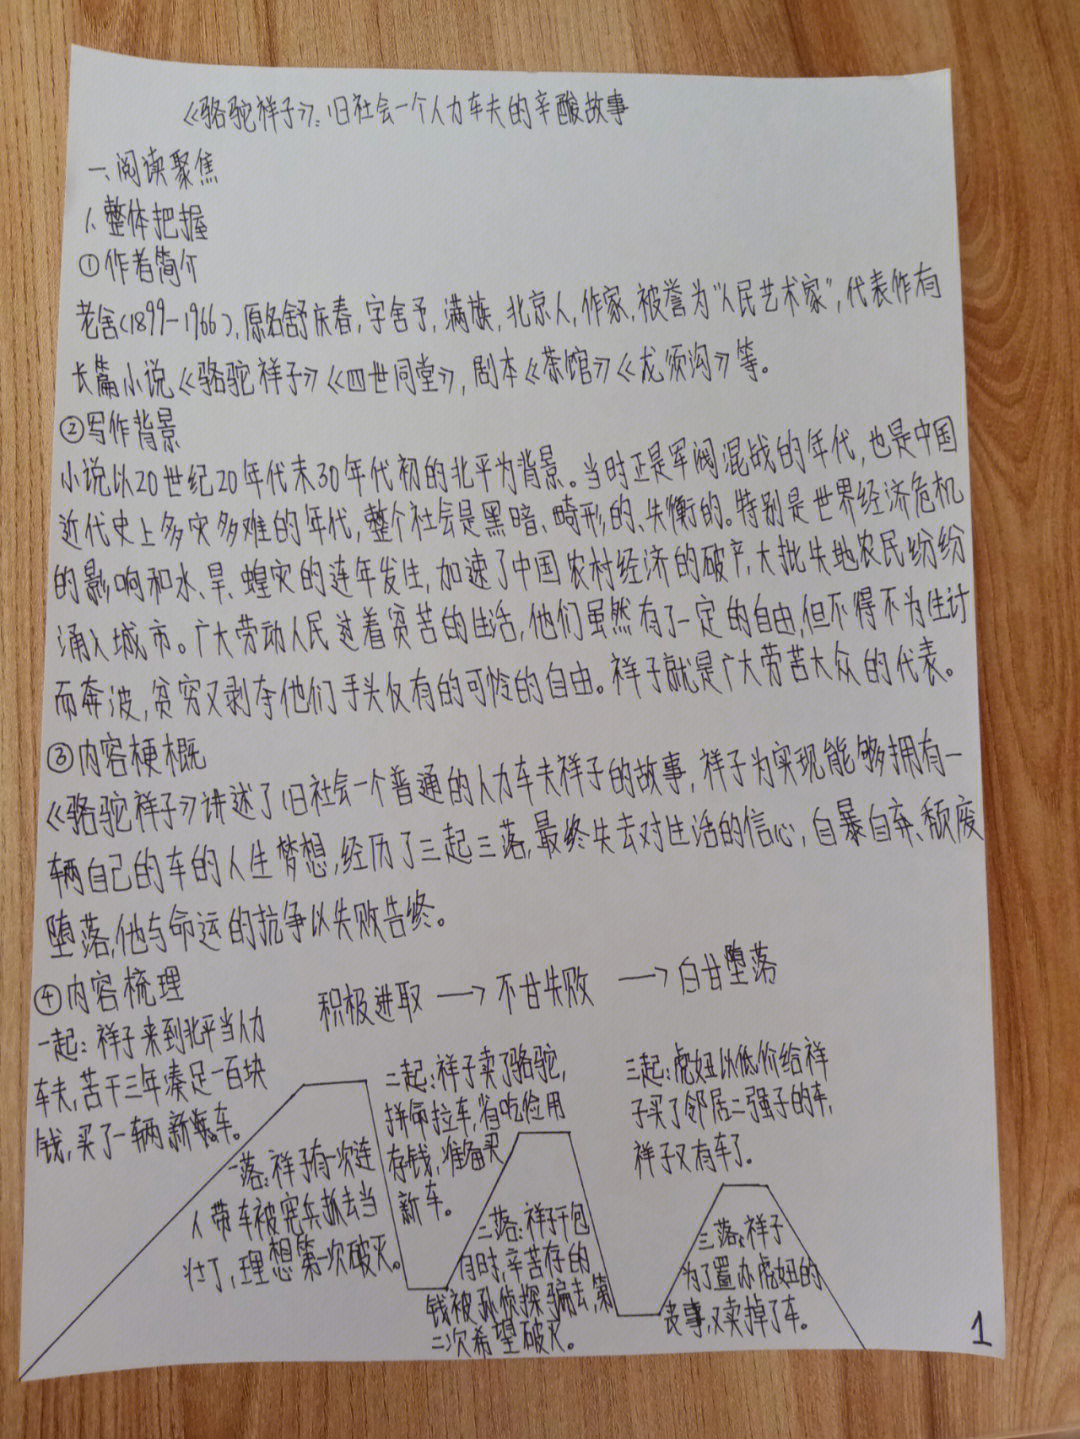 《骆驼祥子》：旧社会一个人力车夫的辛酸故事
一、阅读聚焦
1、整体把握
①作者简介
老舍(1899-1966)，原名舒庆春，字舍予，满族，北京人，作家，被誉为“人民艺术家”，代表作有
长篇小说《骆驼祥子》《四世同堂》，剧本《茶馆》《龙须沟》等。
②写作背景
小说以20世纪20年代末30年代初的北平为背景。当时正是军阀混战的年代，也是中国
近代史上多灾多难的年代，整个社会是黑暗、畸形的、失衡的。特别是世界经济危机
的影响和水、旱、蝗灾的连年发生，加速了中国农村经济的破产，大批失地农民纷纷
涌入城市。广大劳动人民过着贫苦的生活，他们虽然有了一定的自由，但不得不为生计
而奔波，贫穷又剥夺他们手头仅有的可怜的自由。祥子就是广大劳苦大众的代表。
③内容梗概
《骆驼祥子》讲述了旧社会一个普通的人力车夫祥子的故事，祥子为实现能够拥有一
辆自己的车的人生梦想，经历了三起三落，最终失去对生活的信心，自暴自弃、颓废
堕落，他与命运的抗争以失败告终。
④内容梳理
积极进取 → 不甘失败 → 自甘堕落
一起：祥子来到北平当人力
车夫，苦干三年凑足一百块
钱，买了一辆新车。
一落：祥子有一次连
人带车被宪兵抓去当
壮丁，理想第一次破灭。
二起：祥子卖了骆驼，
拼命拉车，省吃俭用
存钱，准备买
新车。
二落：祥子干包
月时，辛苦存的
钱被孙侦探骗去，第
二次希望破灭。
三起：虎妞以低价给祥
子买了邻居二强子的车，
祥子又有车了。
三落：祥子
为了置办虎妞的
丧事，又卖掉了车。
1